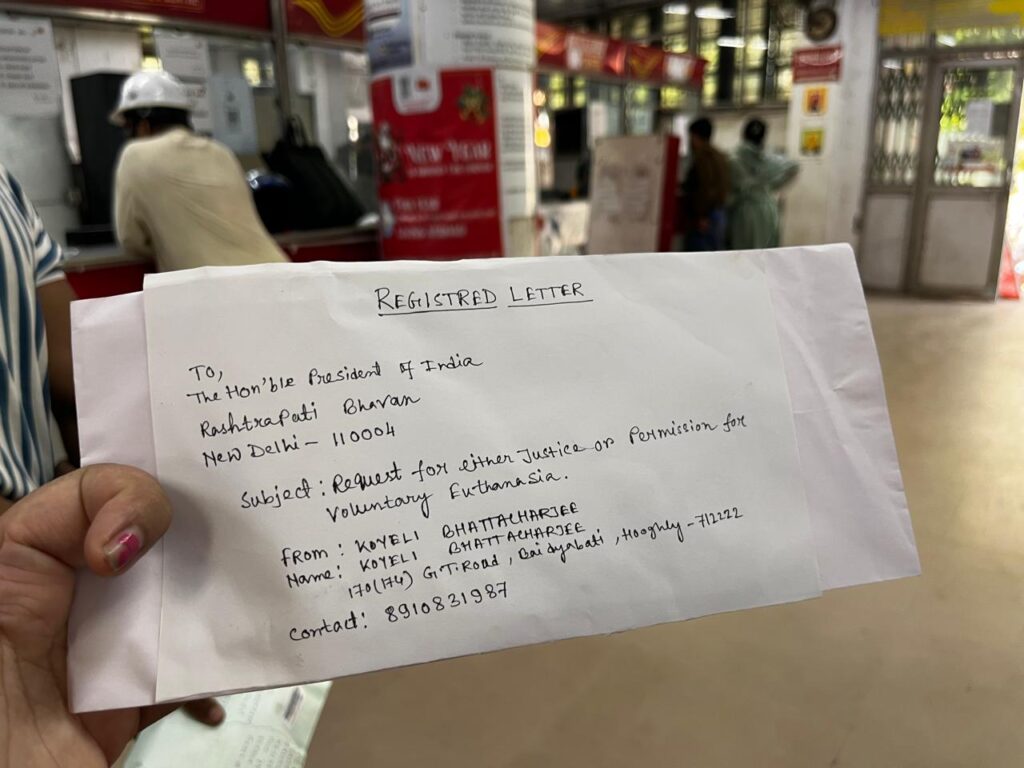 REGISTRED LETTER
TO,
The Hon'ble President of India
RashtraPati Bhavan
New Delhi - 110004
Subject: Request for either Justice or Permission for
Voluntary Euthanasia.
From: KOYELI BHATTACHARJEE
Name: KOYELI BHATTACHARJEE
170(174) G.T. Road, Baidyabati, Hooghly - 712222
Contact: 8910831987
NEW YEAR